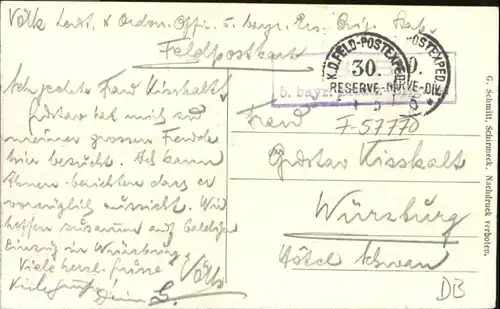 Völk Leut. & Ordon. Offz. 5. bayr. Res. Brig. Stab.
Feldpostkarte
K.D. FELD-POSTEXPED.
30.
RESERVE-DIV.
5. bayr.
F-57770
Frau
Gustav Kisskalt
Würzburg
Hôtel Schwan
Sehr geehrte Frau Kisskalt!
Gustav hat mich zu
meiner grossen Freude
hier besucht. Ich kann
Ihnen berichten dass er
vorzüglich aussieht. Wir
hoffen zusammen auf baldigen
Einzug in Würzburg.
Viele herzl. Grüsse
Völk
Viele Grüsse!
Dein G.
G. Schmitt, Schirmeck. Nachdruck verboten.
DB